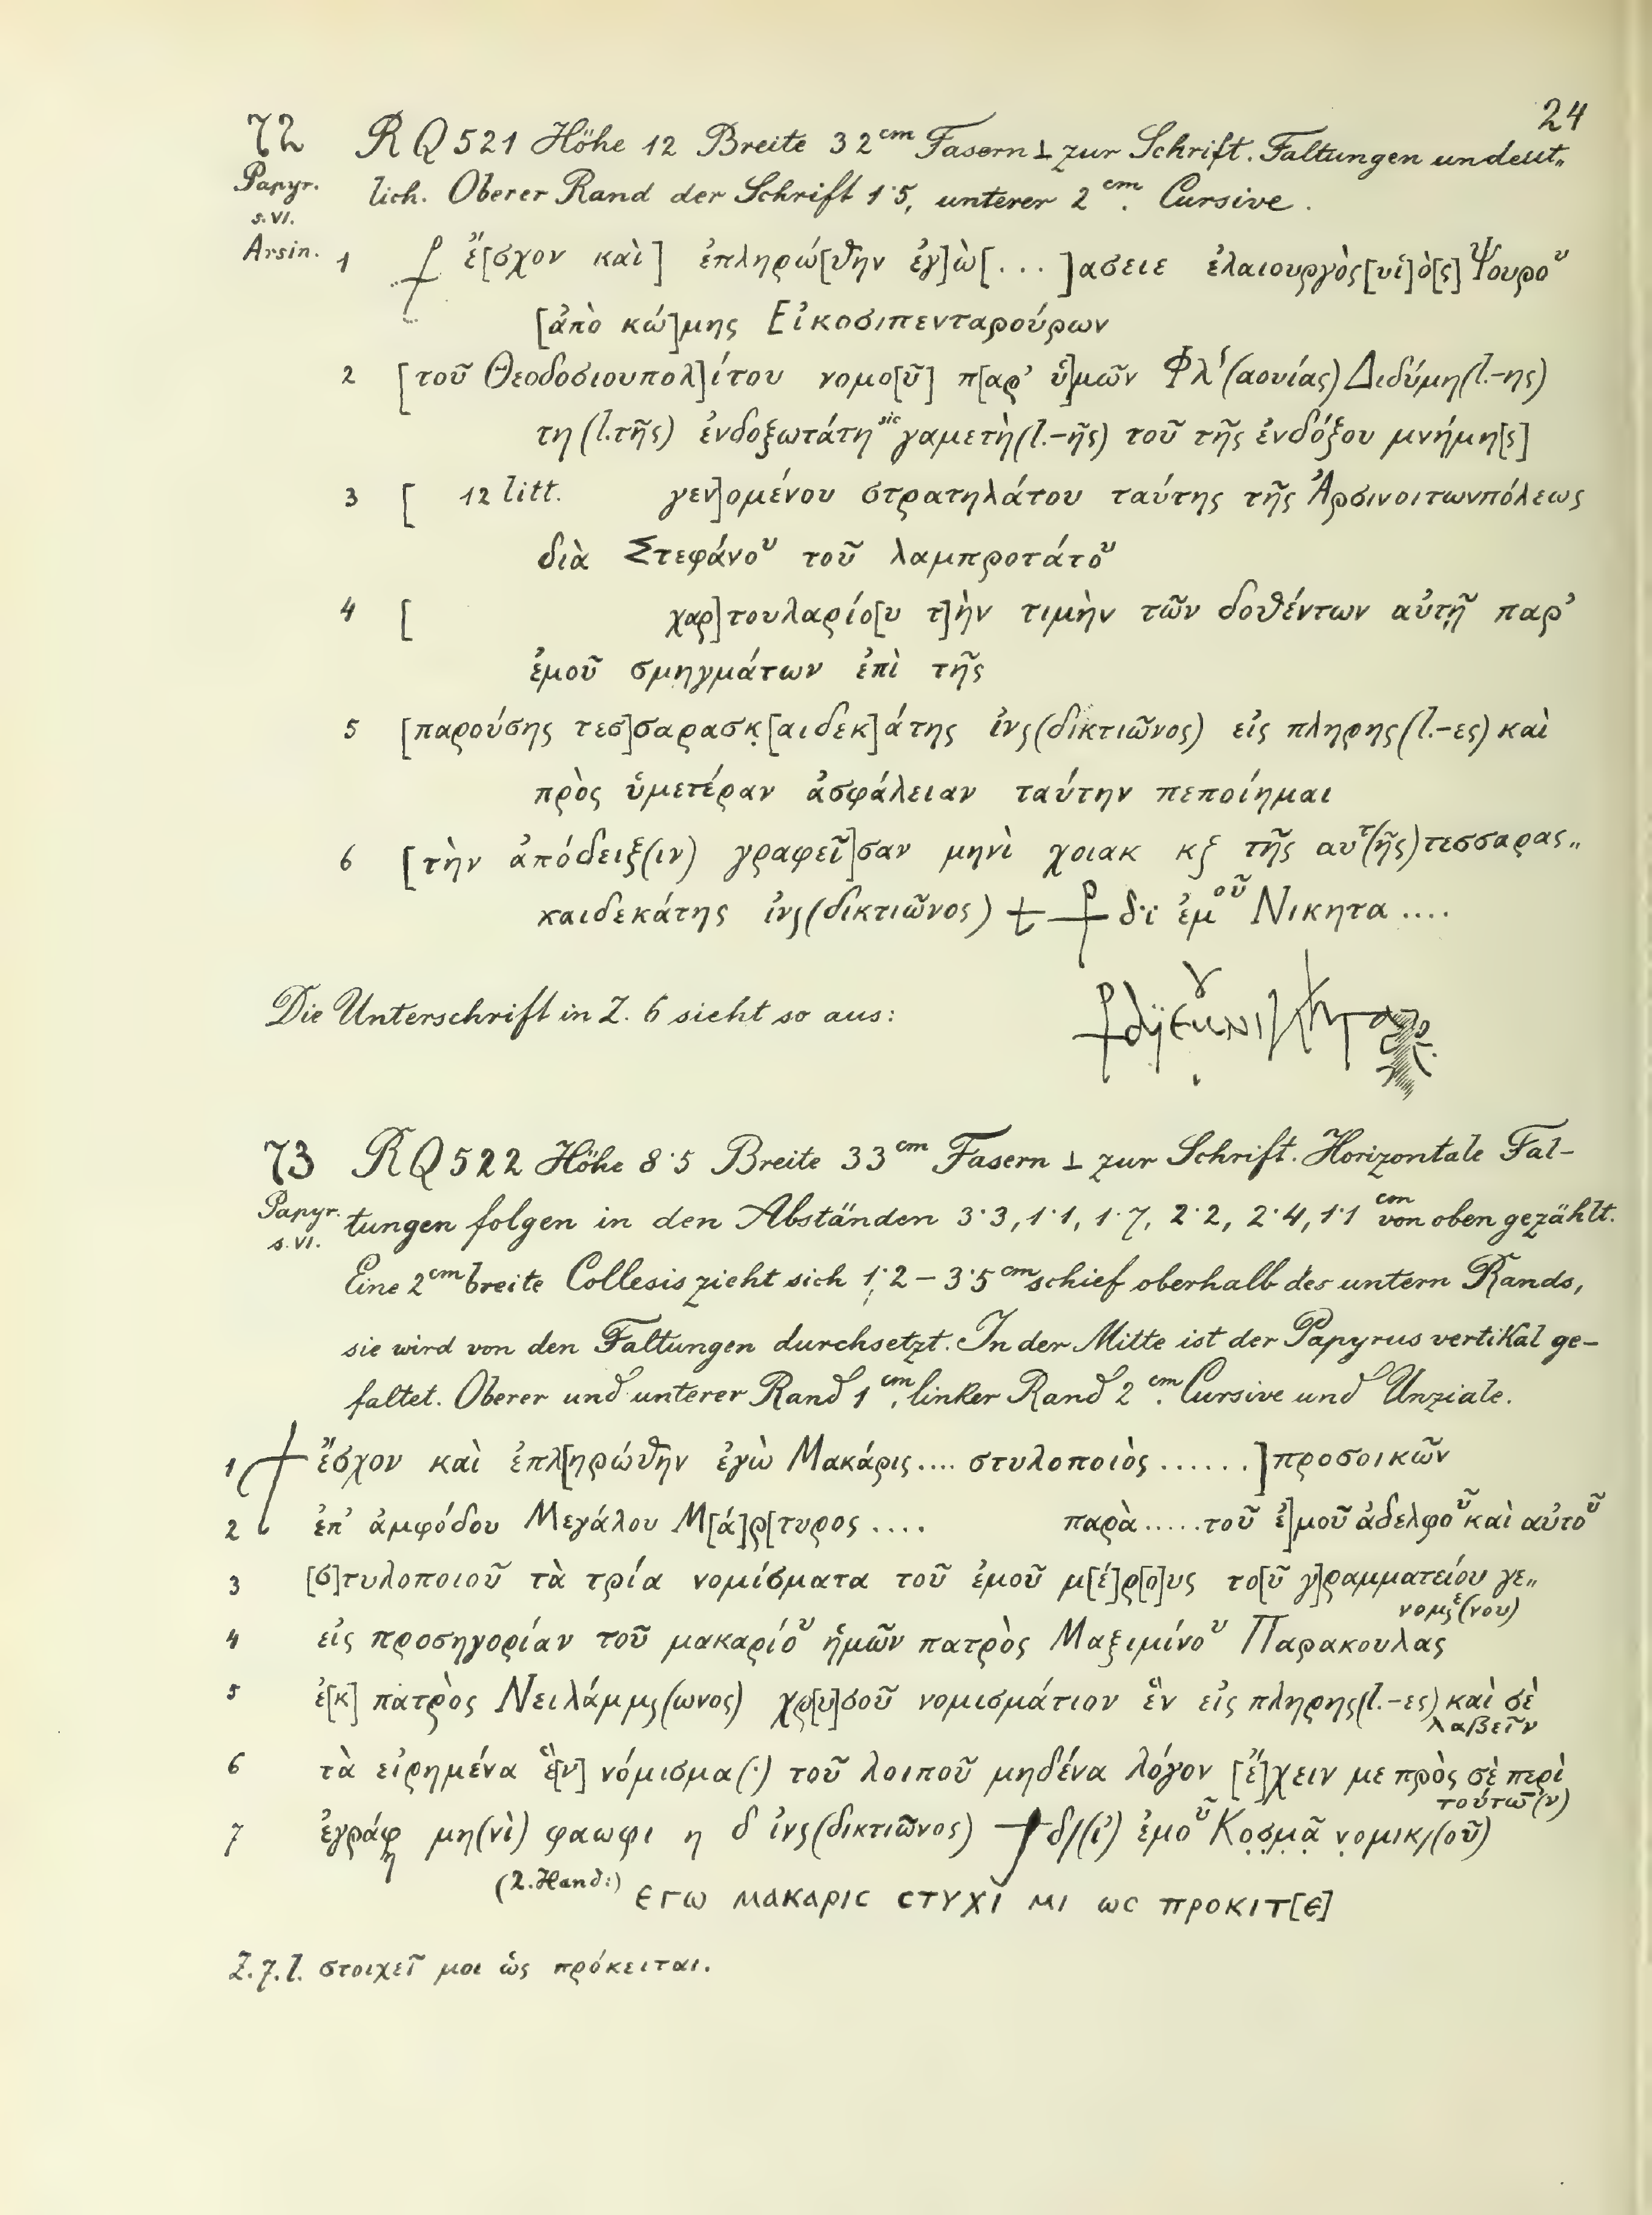 24
72 RQ521 Höhe 12 Breite 32 cm Fasern ⊥ zur Schrift. Faltungen undeut„
Papyr. s. VI. lich. Oberer Rand der Schrift 1·5, unterer 2 cm. Cursive.
Arsin. 1 ⳨ ἔ[σχον καὶ] ἐπληρώ[θην ἐγ]ὼ[...]ασειε ἐλαιουργὸς[υἱ]ὸ[ς] Ψουροῦ
[ἀπὸ κώ]μης Εἰκοσιπενταρούρων
2 [τοῦ Θεοδοσιουπολ]ίτου νομο[ῦ] π[αρ’ ὑ]μῶν Φλ́(αουίας) Διδύμη(l.-ης)
τη(l.τῆς) ἐνδοξωτάτη sic γαμετὴ(l.-ῆς) τοῦ τῆς ἐνδόξου μνήμη[ς]
3 [ 12 litt. γεν]ομένου στρατηλάτου ταύτης τῆς Ἀρσινοιτωνπόλεως
διὰ Στεφάνου τοῦ λαμπροτάτου
4 [ χαρ]τουλαρίο[υ τ]ὴν τιμὴν τῶν δοθέντων αὐτῇ παρ’
ἐμοῦ σμηγμάτων ἐπὶ τῆς
5 [παρούσης τεσ]σαρασκ̣[αιδεκ]άτης ἰνς(δικτιῶνος) εἰς πληρης(l.-ες) καὶ
πρὸς ὑμετέραν ἀσφάλειαν ταύτην πεποίημαι
6 [τὴν ἀπόδειξ(ιν) γραφεῖ]σαν μηνὶ χοιακ κξ τῆς αυτ(ῆς) τεσσαρας„
καιδεκάτης ἰνς(δικτιῶνος) + ⳨ δ·ι ἐμοῦ Νικητα ....
Die Unterschrift in Z. 6 sieht so aus:
73 RQ522 Höhe 8·5 Breite 33 cm Fasern ⊥ zur Schrift. Horizontale Fal-
Papyr. s. VI. tungen folgen in den Abständen 3·3, 1·1, 1·7, 2·2, 2·4, 1·1 cm von oben gezählt.
Eine 2 cm breite Collesis zieht sich 1·2 – 3·5 cm schief oberhalb des untern Rands,
sie wird von den Faltungen durchsetzt. In der Mitte ist der Papyrus vertikal ge-
faltet. Oberer und unterer Rand 1 cm, linker Rand 2 cm. Cursive und Unziale.
1 ἔσχον καὶ ἐπλ[ηρώθην ἐγὼ Μακάρις.... στυλοποιὸς ......]προσοικῶν
2 ἐπ’ ἀμφόδου Μεγάλου Μ[ά]ρ[τυρος .... παρὰ.....τοῦ ἐ]μοῦ ἀδελφοῦ καὶ αὐτοῦ
3 [σ]τυλοποιοῦ τὰ τρία νομίσματα τοῦ ἐμοῦ μ[έ]ρ[ο]υς το[ῦ γ]ραμματείου γε„
νομςε(νου)
4 εἰς προσηγορίαν τοῦ μακαρίου ἡμῶν πατρὸς Μαξιμίνου Παρακουλας
5 ἐ[κ] πατρὸς Νειλάμμς(ωνος) χρ[υ]σοῦ νομισμάτιον ἓν εἰς πληρης(l.-ες) καὶ σὲ
λαβεῖν
6 τὰ εἰρημένα ἓ[ν] νόμισμα(·) τοῦ λοιποῦ μηδένα λόγον [ἔ]χειν με πρὸς σὲ περὶ
τούτω(ν)
7 ἐγράφη μη(νὶ) φαωφι η δ ἰνς(δικτιῶνος) ⳨ δ/(ι’) ἐμοῦ Κο̣σ̣μ̣ᾶ̣ ν̣ομικ/(οῦ)
(2. Hand:) ΕΓΩ ΜΑΚΑΡΙC CΤΥΧΙ ΜΙ ΩC ΠΡΟΚΙΤ[Ε]
Z. 7. l. στοιχεῖ μοι ὡς πρόκειται.